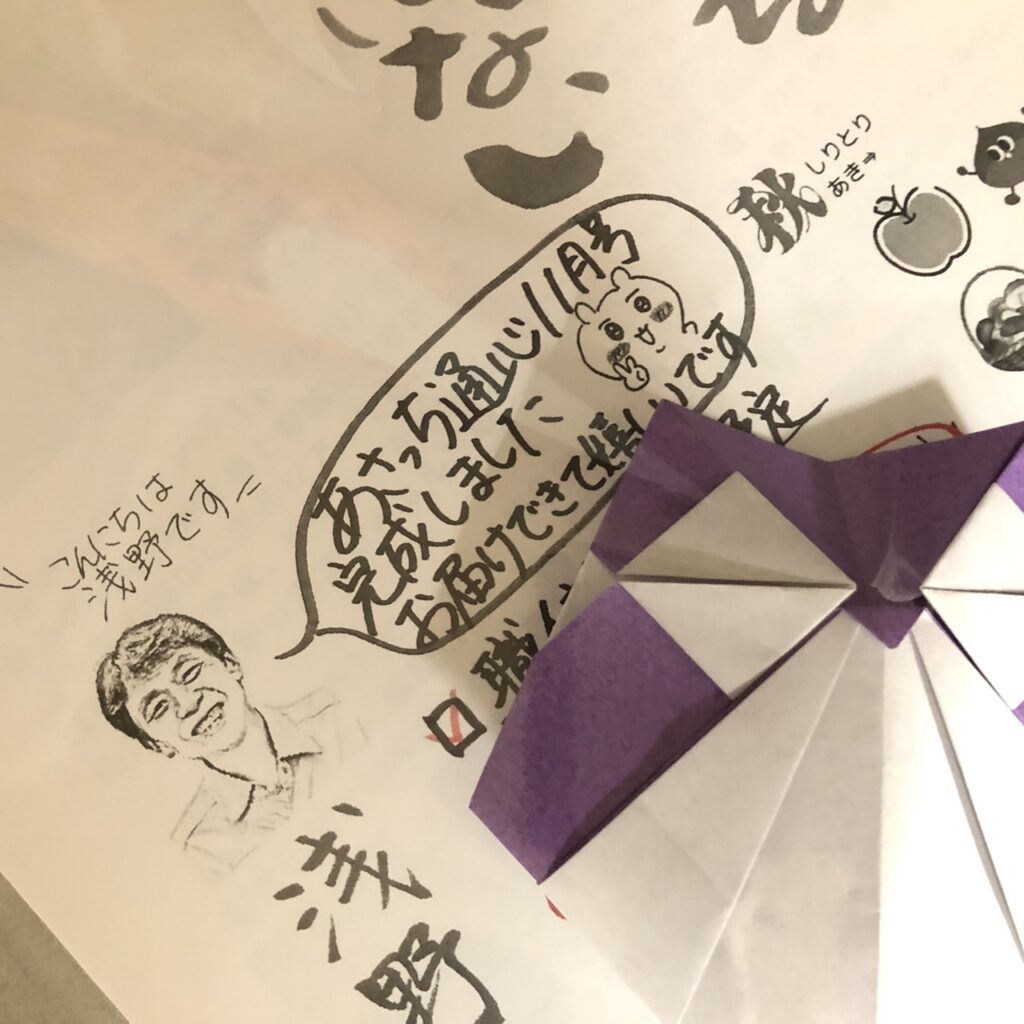 なこ
秋
しりとり
あき→
あさっち通心11月号
完成しました
お届けできて嬉しいです
定
職
こんにちは
浅野です
浅野